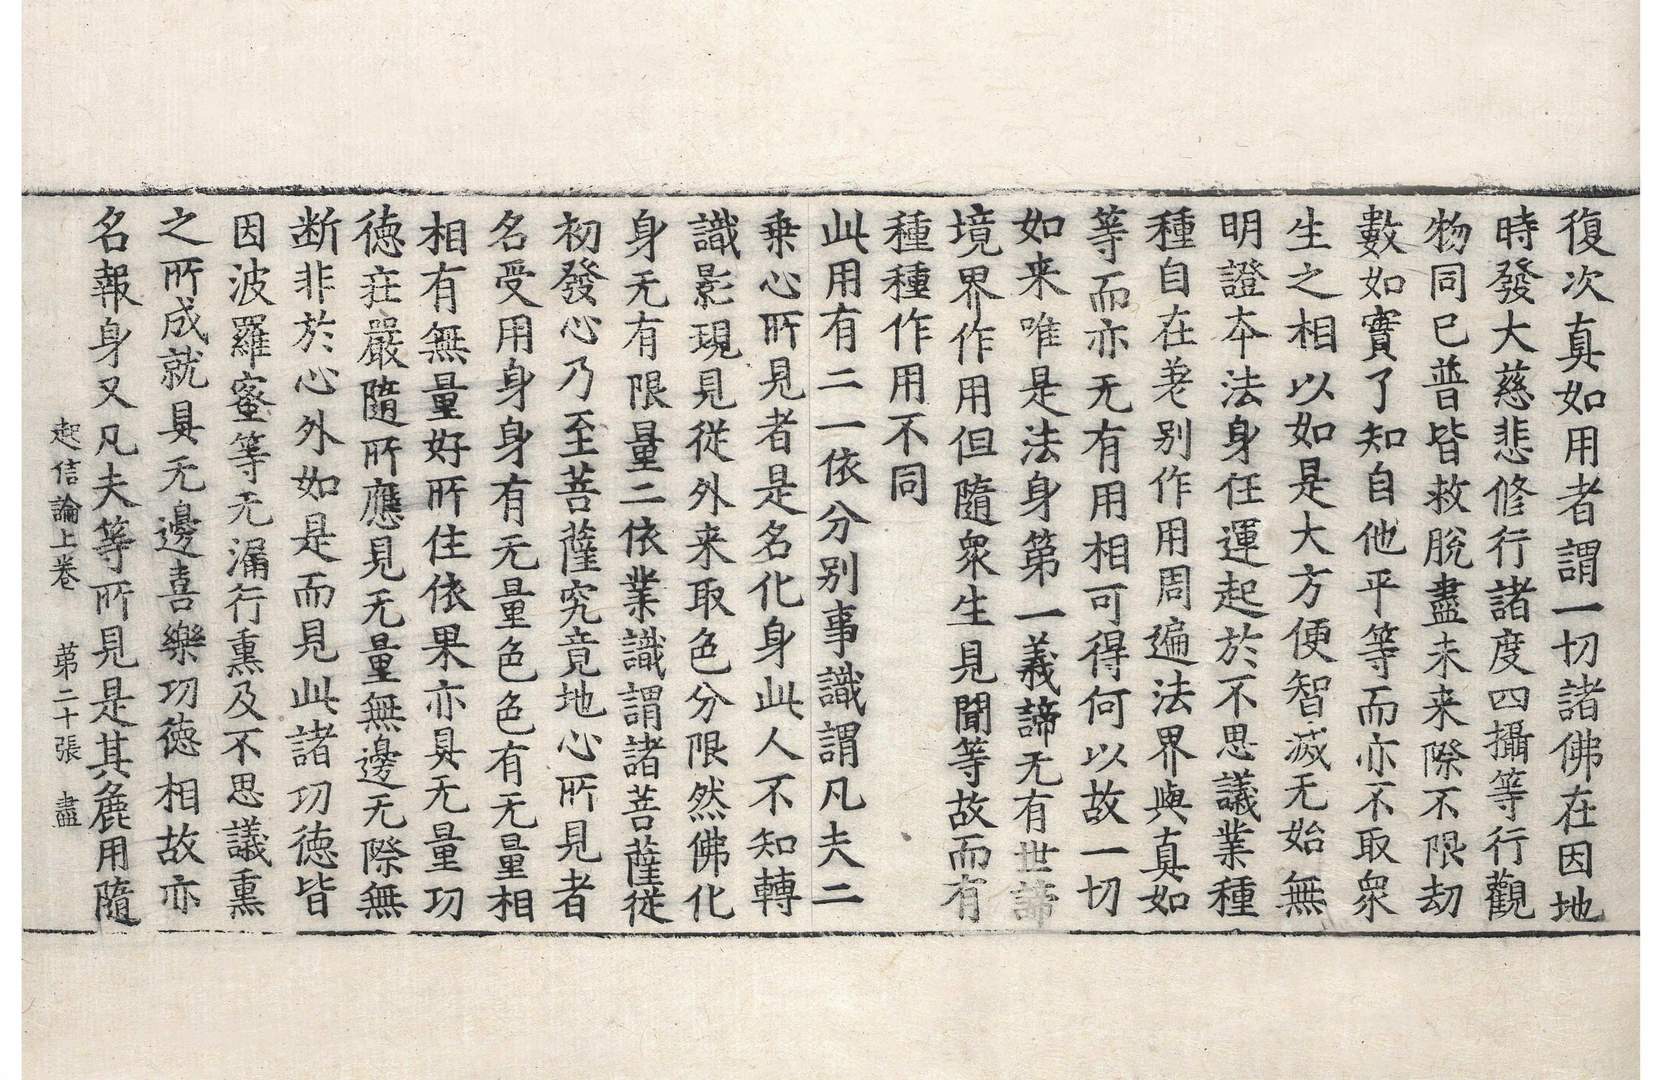 復次真如用者謂一切諸佛在因地
時發大慈悲修行諸度四攝等行觀
物同己普皆救脫盡未来際不限劫
數如實了知自他平等而亦不取衆
生之相以如是大方便智滅无始無
明證本法身任運起於不思議業種
種自在差别作用周遍法界與真如
等而亦无有用相可得何以故一切
如来唯是法身第一義諦无有世諦
境界作用但隨衆生見聞等故而有
種種作用不同
此用有二一依分别事識謂凡夫二
乗心所見者是名化身此人不知轉
識影現見從外来取色分限然佛化
身无有限量二依業識謂諸菩薩從
初發心乃至菩薩究竟地心所見者
名受用身身有无量色色有无量相
相有無量好所住依果亦具无量功
徳莊嚴隨所應見无量無邊无際無
断非於心外如是而見此諸功徳皆
因波羅蜜等无漏行熏及不思議熏
之所成就具无邊喜樂功徳相故亦
名報身又凡夫等所見是其麁用隨
起信論上卷 第二十張 盡